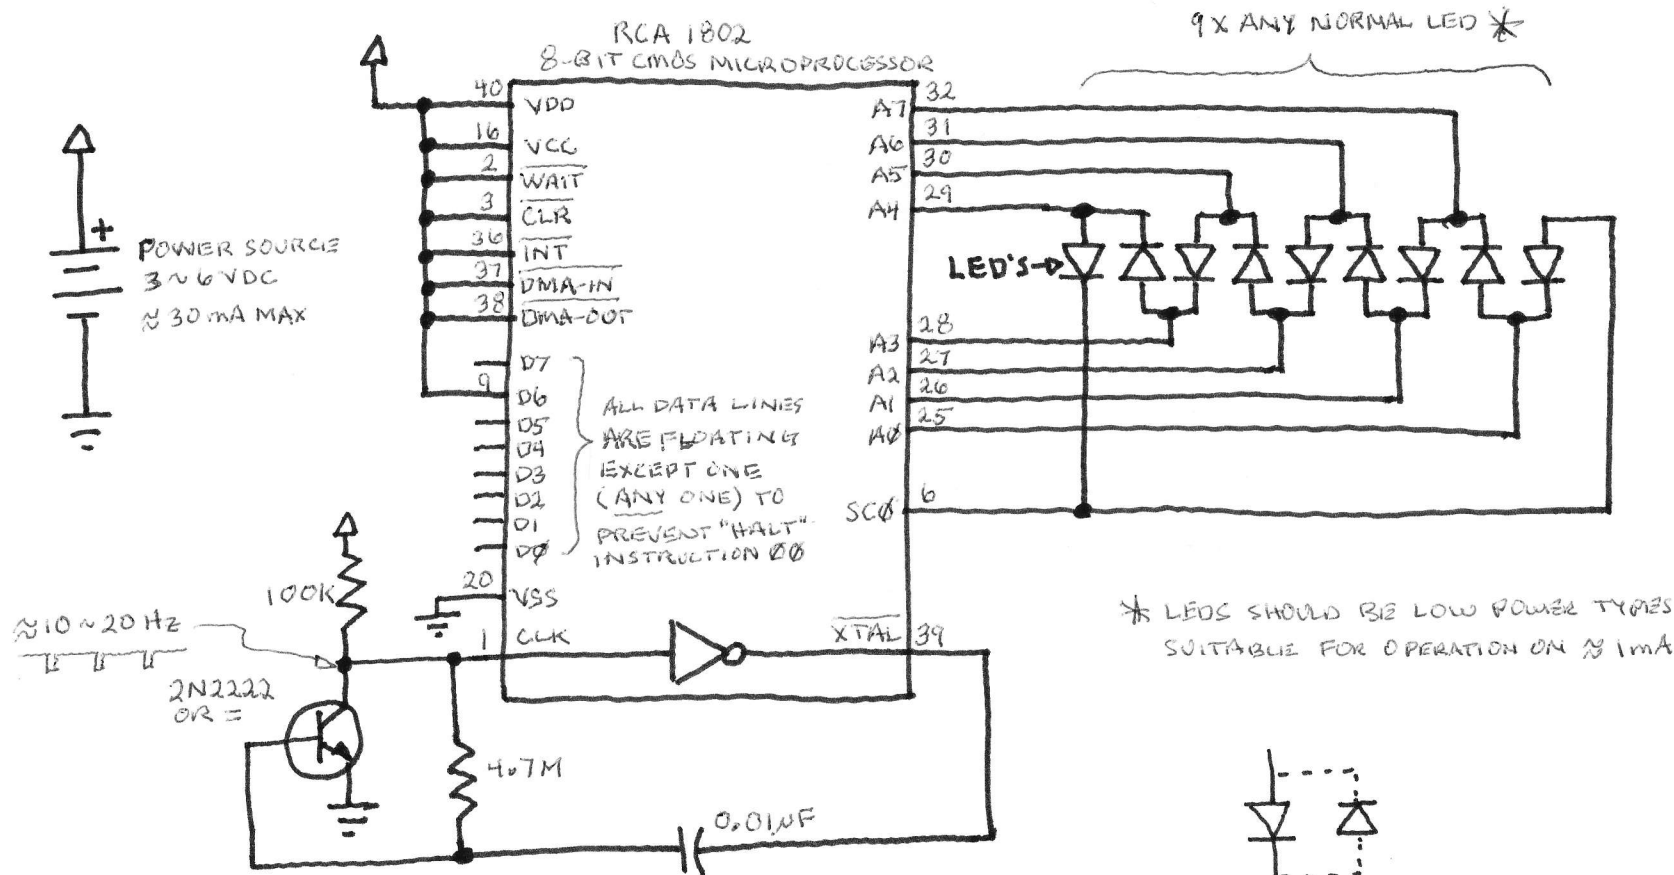 RCA 1802
8-BIT CMOS MICROPROCESSOR
9X ANY NORMAL LED *
40 VDD
16 VCC
2 WAIT
3 CLR
36 INT
37 DMA-IN
38 DMA-OUT
D7
9 D6
D5
D4
D3
D2
D1
D0
20 VSS
1 CLK
A7 32
A6 31
A5 30
A4 29
A3 28
A2 27
A1 26
A0 25
SC0 6
XTAL 39
LED'S
+
POWER SOURCE
3~6 VDC
≈30mA MAX
ALL DATA LINES
ARE FLOATING
EXCEPT ONE
(ANY ONE) TO
PREVENT "HALT"
INSTRUCTION 00
100K
≈10~20 Hz
2N2222
OR =
4.7M
0.01µF
* LEDS SHOULD BE LOW POWER TYPES
SUITABLE FOR OPERATION ON ≈1mA